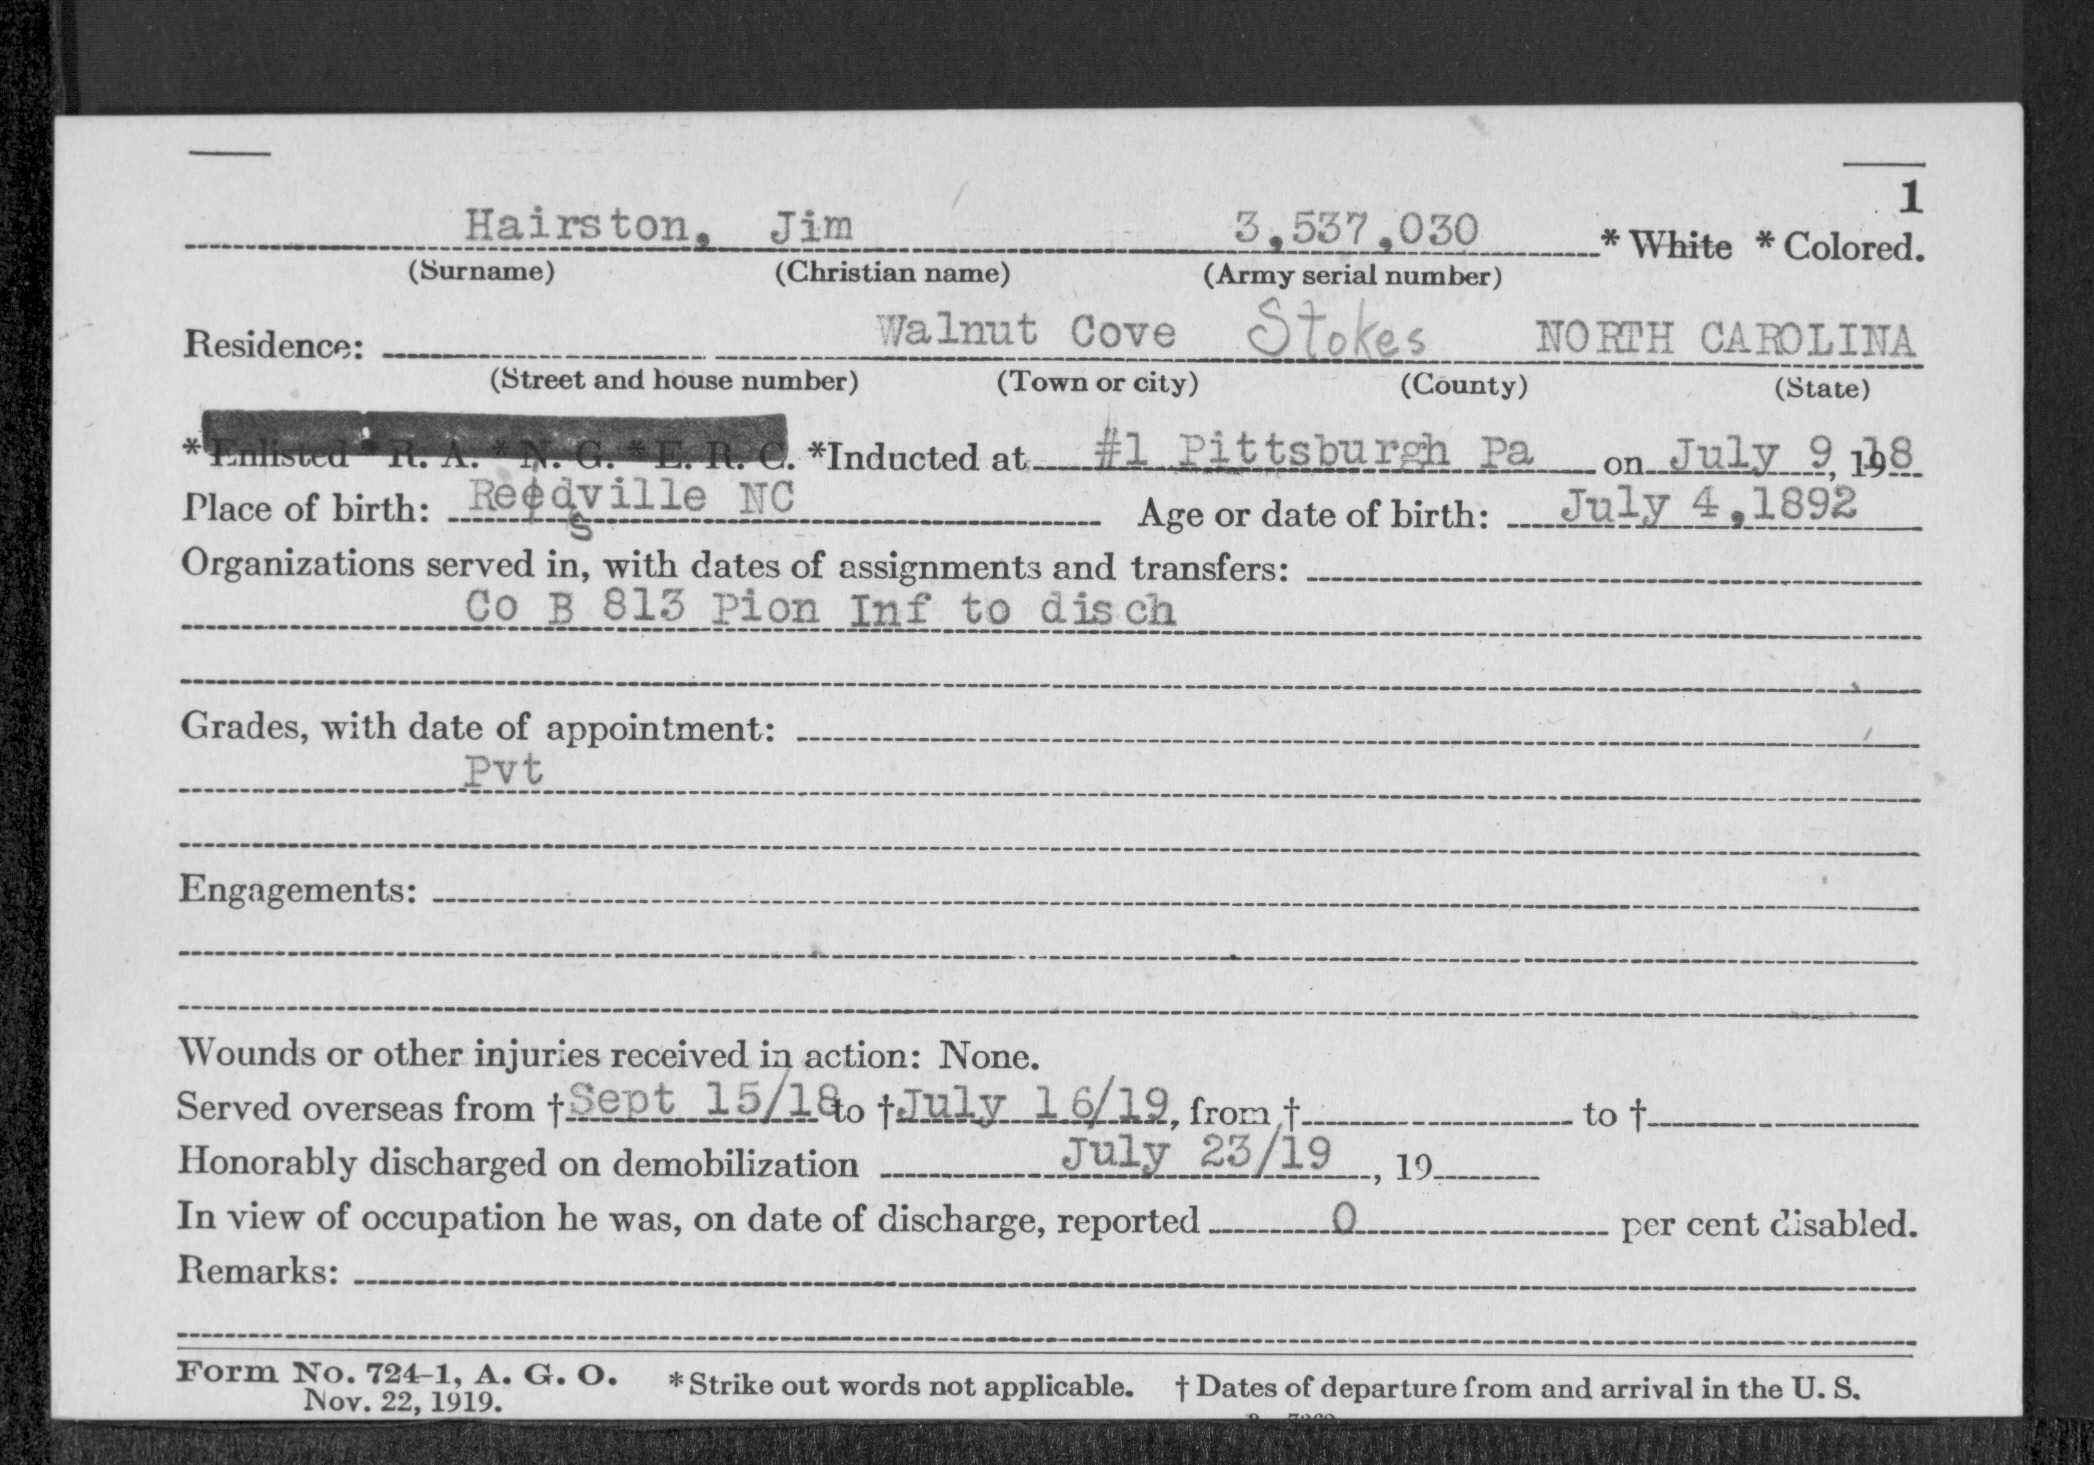 1
Hairston, Jim 3,537,030 * White * Colored.
(Surname) (Christian name) (Army serial number)
Residence: Walnut Cove Stokes NORTH CAROLINA
(Street and house number) (Town or city) (County) (State)
* Enlisted * R. A. * N. G. * E. R. C. *Inducted at #1 Pittsburgh Pa on July 9, 1918
Place of birth: Reedsville NC Age or date of birth: July 4,1892
Organizations served in, with dates of assignments and transfers:
Co B 813 Pion Inf to disch
Grades, with date of appointment:
Pvt
Engagements:
Wounds or other injuries received in action: None.
Served overseas from † Sept 15/18 to † July 16/19, from † to †
Honorably discharged on demobilization July 23/19, 19
In view of occupation he was, on date of discharge, reported 0 per cent disabled.
Remarks:
Form No. 724-1, A. G. O. * Strike out words not applicable. † Dates of departure from and arrival in the U. S.
Nov. 22, 1919.